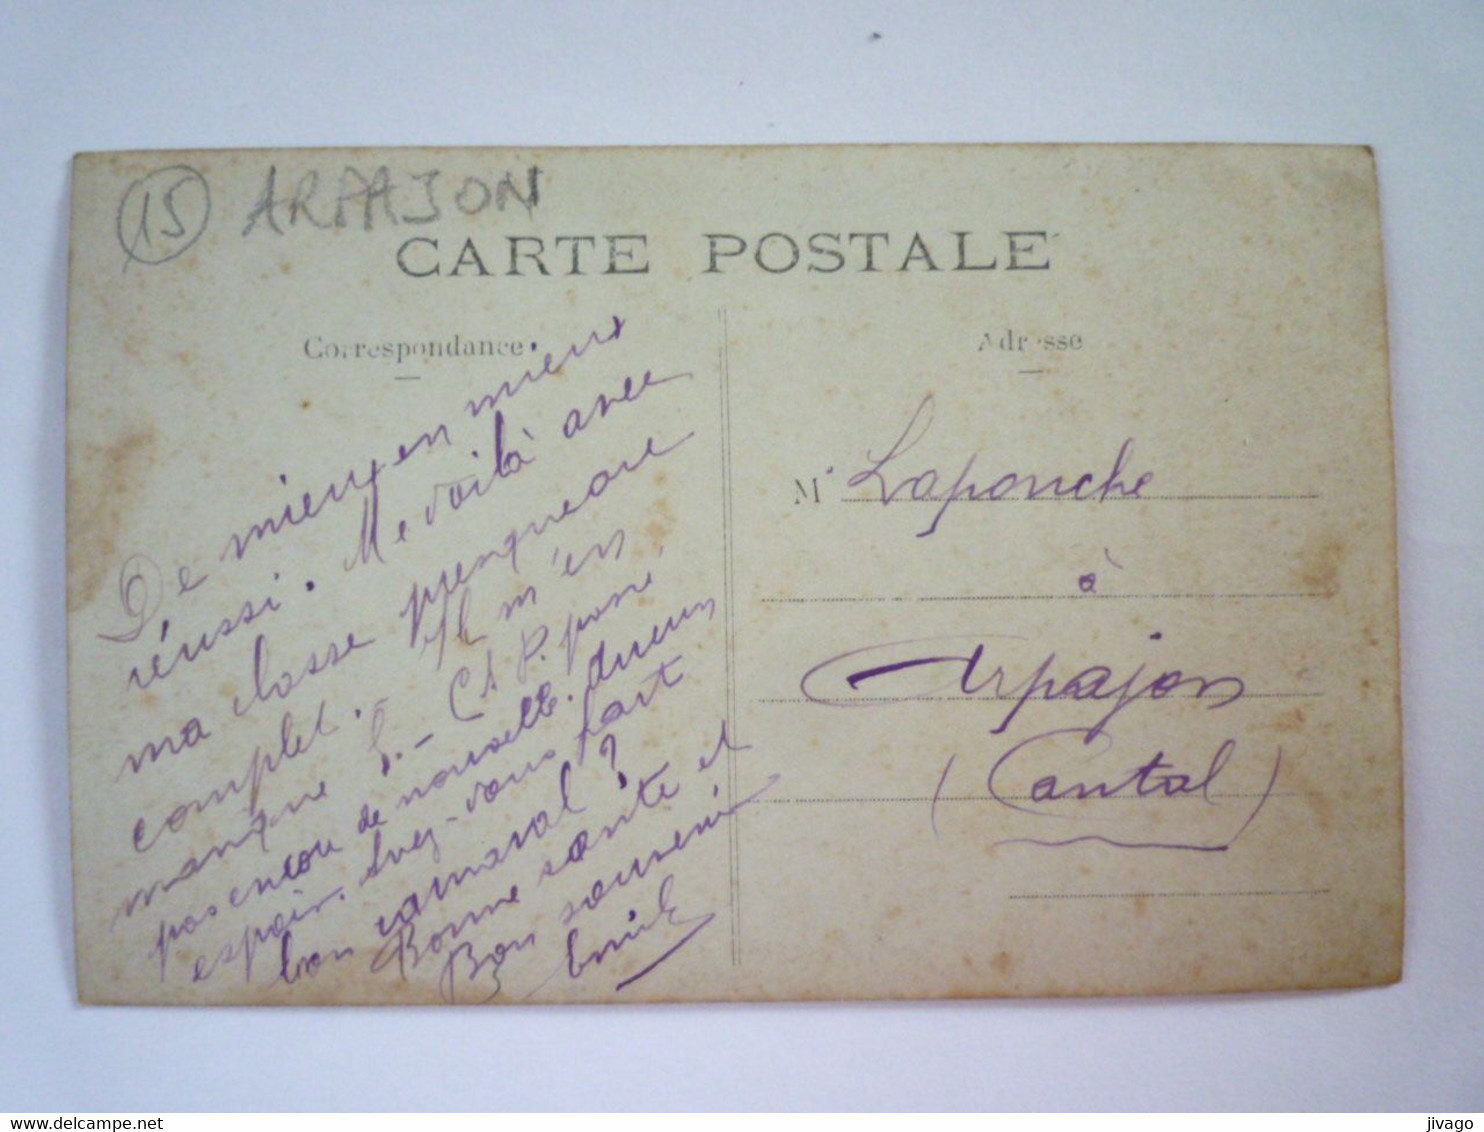 15 ARPAJON
CARTE POSTALE
Correspondance.
De mieux en mieux
réussi. Me voilà avec
ma classe presque au
complet. Il m'en
manque
pas encore de nouvelle. Aucun
espoir. Avez-vous fait
bon carnaval ?
Bonne santé et
Bon souvenir
Emile
Adresse
M' Lapouche
à
Arpajon
(Cantal)
www.delcampe.net
jivago